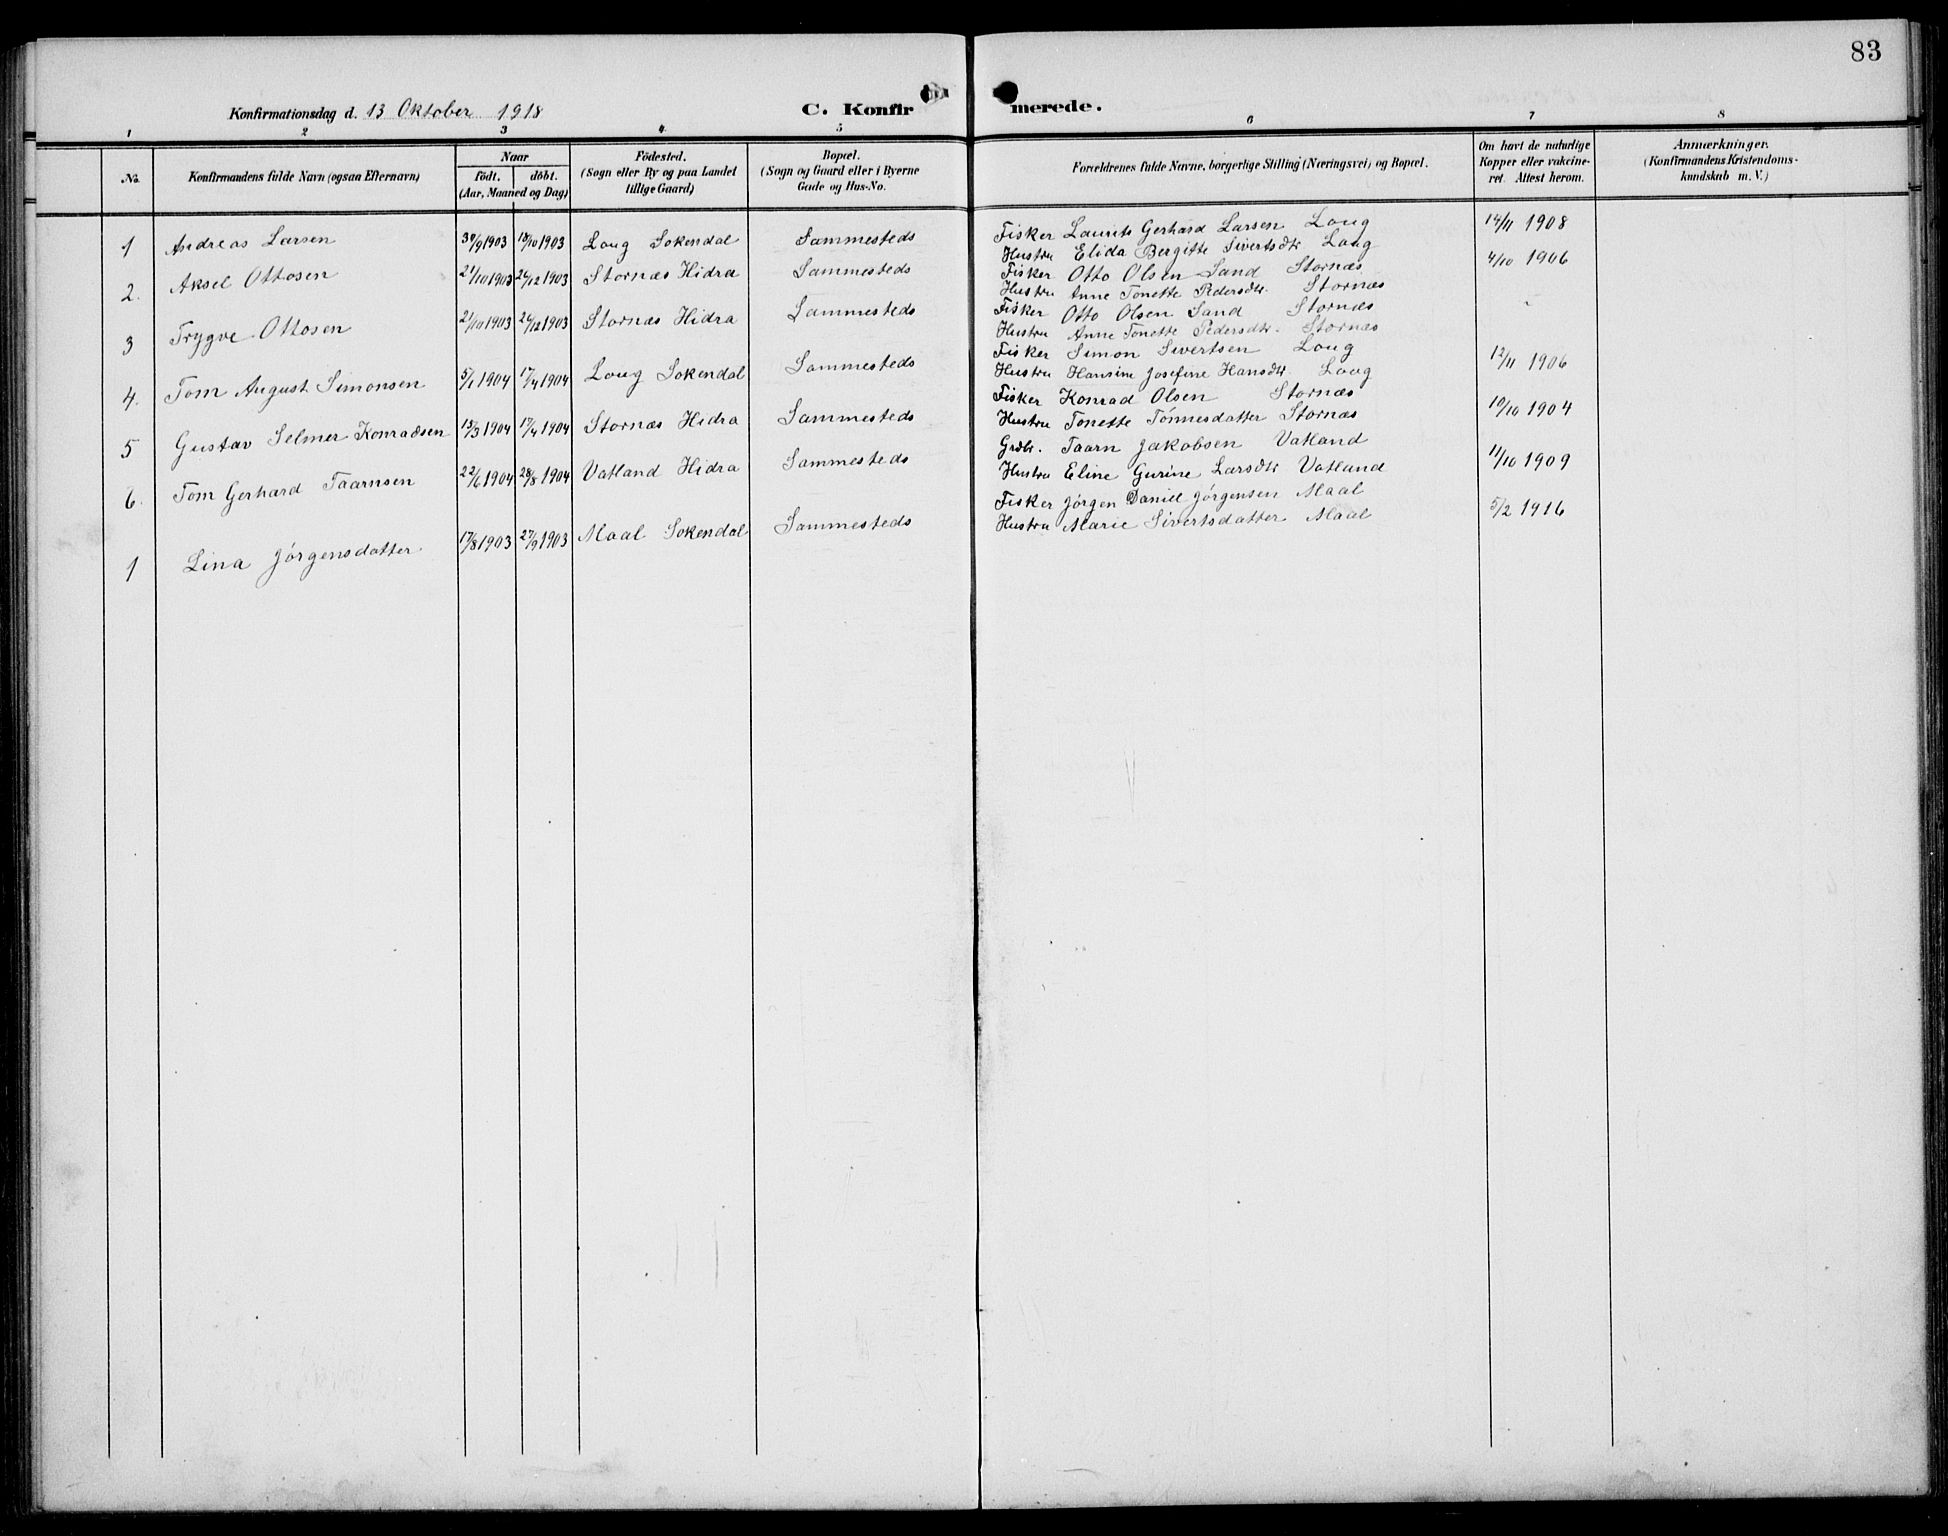 83
Konfirmationsdag d. 13 Oktober 1918
C. Konfirmerede.
1 2 3 4 5 6 7 8
No. Konfirmandens fulde Navn (ogsaa Efternavn) Naar födt. döbt. (Aar, Maaned og Dag) Födested. (Sogn eller By og paa Landet tillige Gaard) Bopæl. (Sogn og Gaard eller i Byerne Gade og Hus-No. Forældrenes fulde Navne, borgerlige Stilling (Næringsvei) og Bopæl. Om havt de naturlige Kopper eller vakcineret. Attest herom. Anmærkninger. (Konfirmandens Kristendomskundskab m. V.)
1 Andreas Larsen 30/9 1903 18/10 1903 Loug Sokendal Sammesteds Fisker Laurits Gerhard Larsen Loug 14/11 1908
Hustru Elida Bergitte Sivertsdtr Loug
2. Aksel Ottosen 21/10 1903 26/12 1903 Stornæs Hidra Sammesteds Fisker Otto Olsen Sand Stornæs 4/10 1906
Hustru Anne Tonette Pedersdtr. Stornæs
3 Trygve Ottosen 21/10 1903 26/12 1903 Stornæs Hidra Sammesteds Fisker Otto Olsen Sand Stornæs "
Hustru Anne Tonette Pedersdtr. Stornæs
4. Tom August Simonsen 5/1 1904 17/4 1904 Loug Sokendal Sammesteds Fisker Simon Sivertsen Loug 12/11 1906
Hustru Hansine Josefine Hansdtr. Loug
5 Gustav Selmer Konradsen 13/3 1904 17/4 1904 Stornæs Hidra Sammesteds Fisker Konrad Olsen Stornæs 10/10 1904
Hustru Tonette Tönnesdatter Stornæs
6. Tom Gerhard Taarnsen 22/6 1904 28/8 1904 Vatland Hidra Sammesteds Grdbr. Taarn Jakobsen Vatland 11/10 1909
Hustru Eline Gurine Larsdtr Vatland
1 Lina Jörgensdatter 17/8 1903 27/9 1903 Maal Sokendal Sammesteds Fisker Jörgen Daniel Jörgensen Maal 5/2 1916
Hustru Marie Sivertsdatter Maal